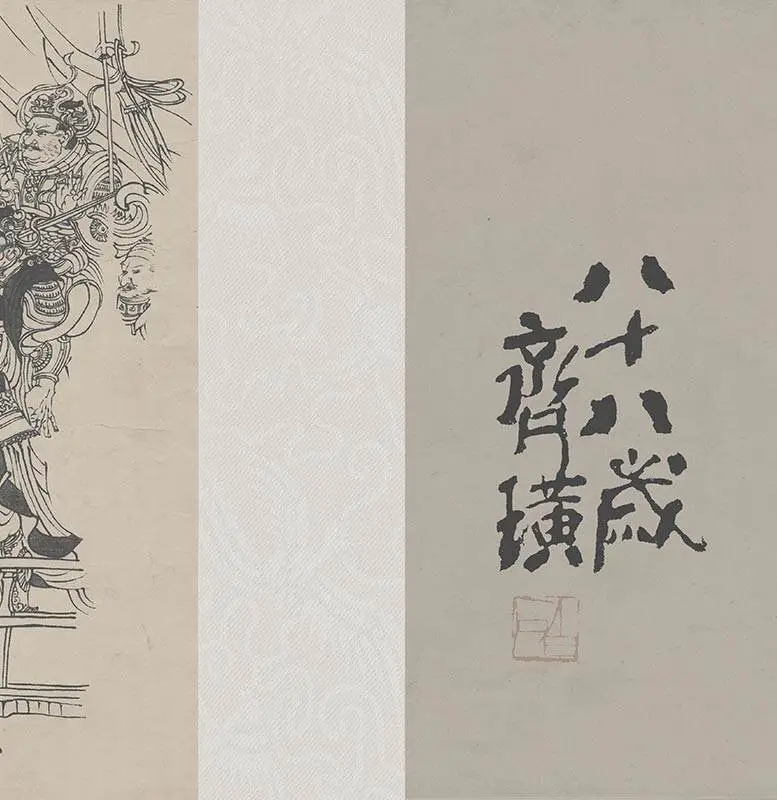 八十八歲
齊璜